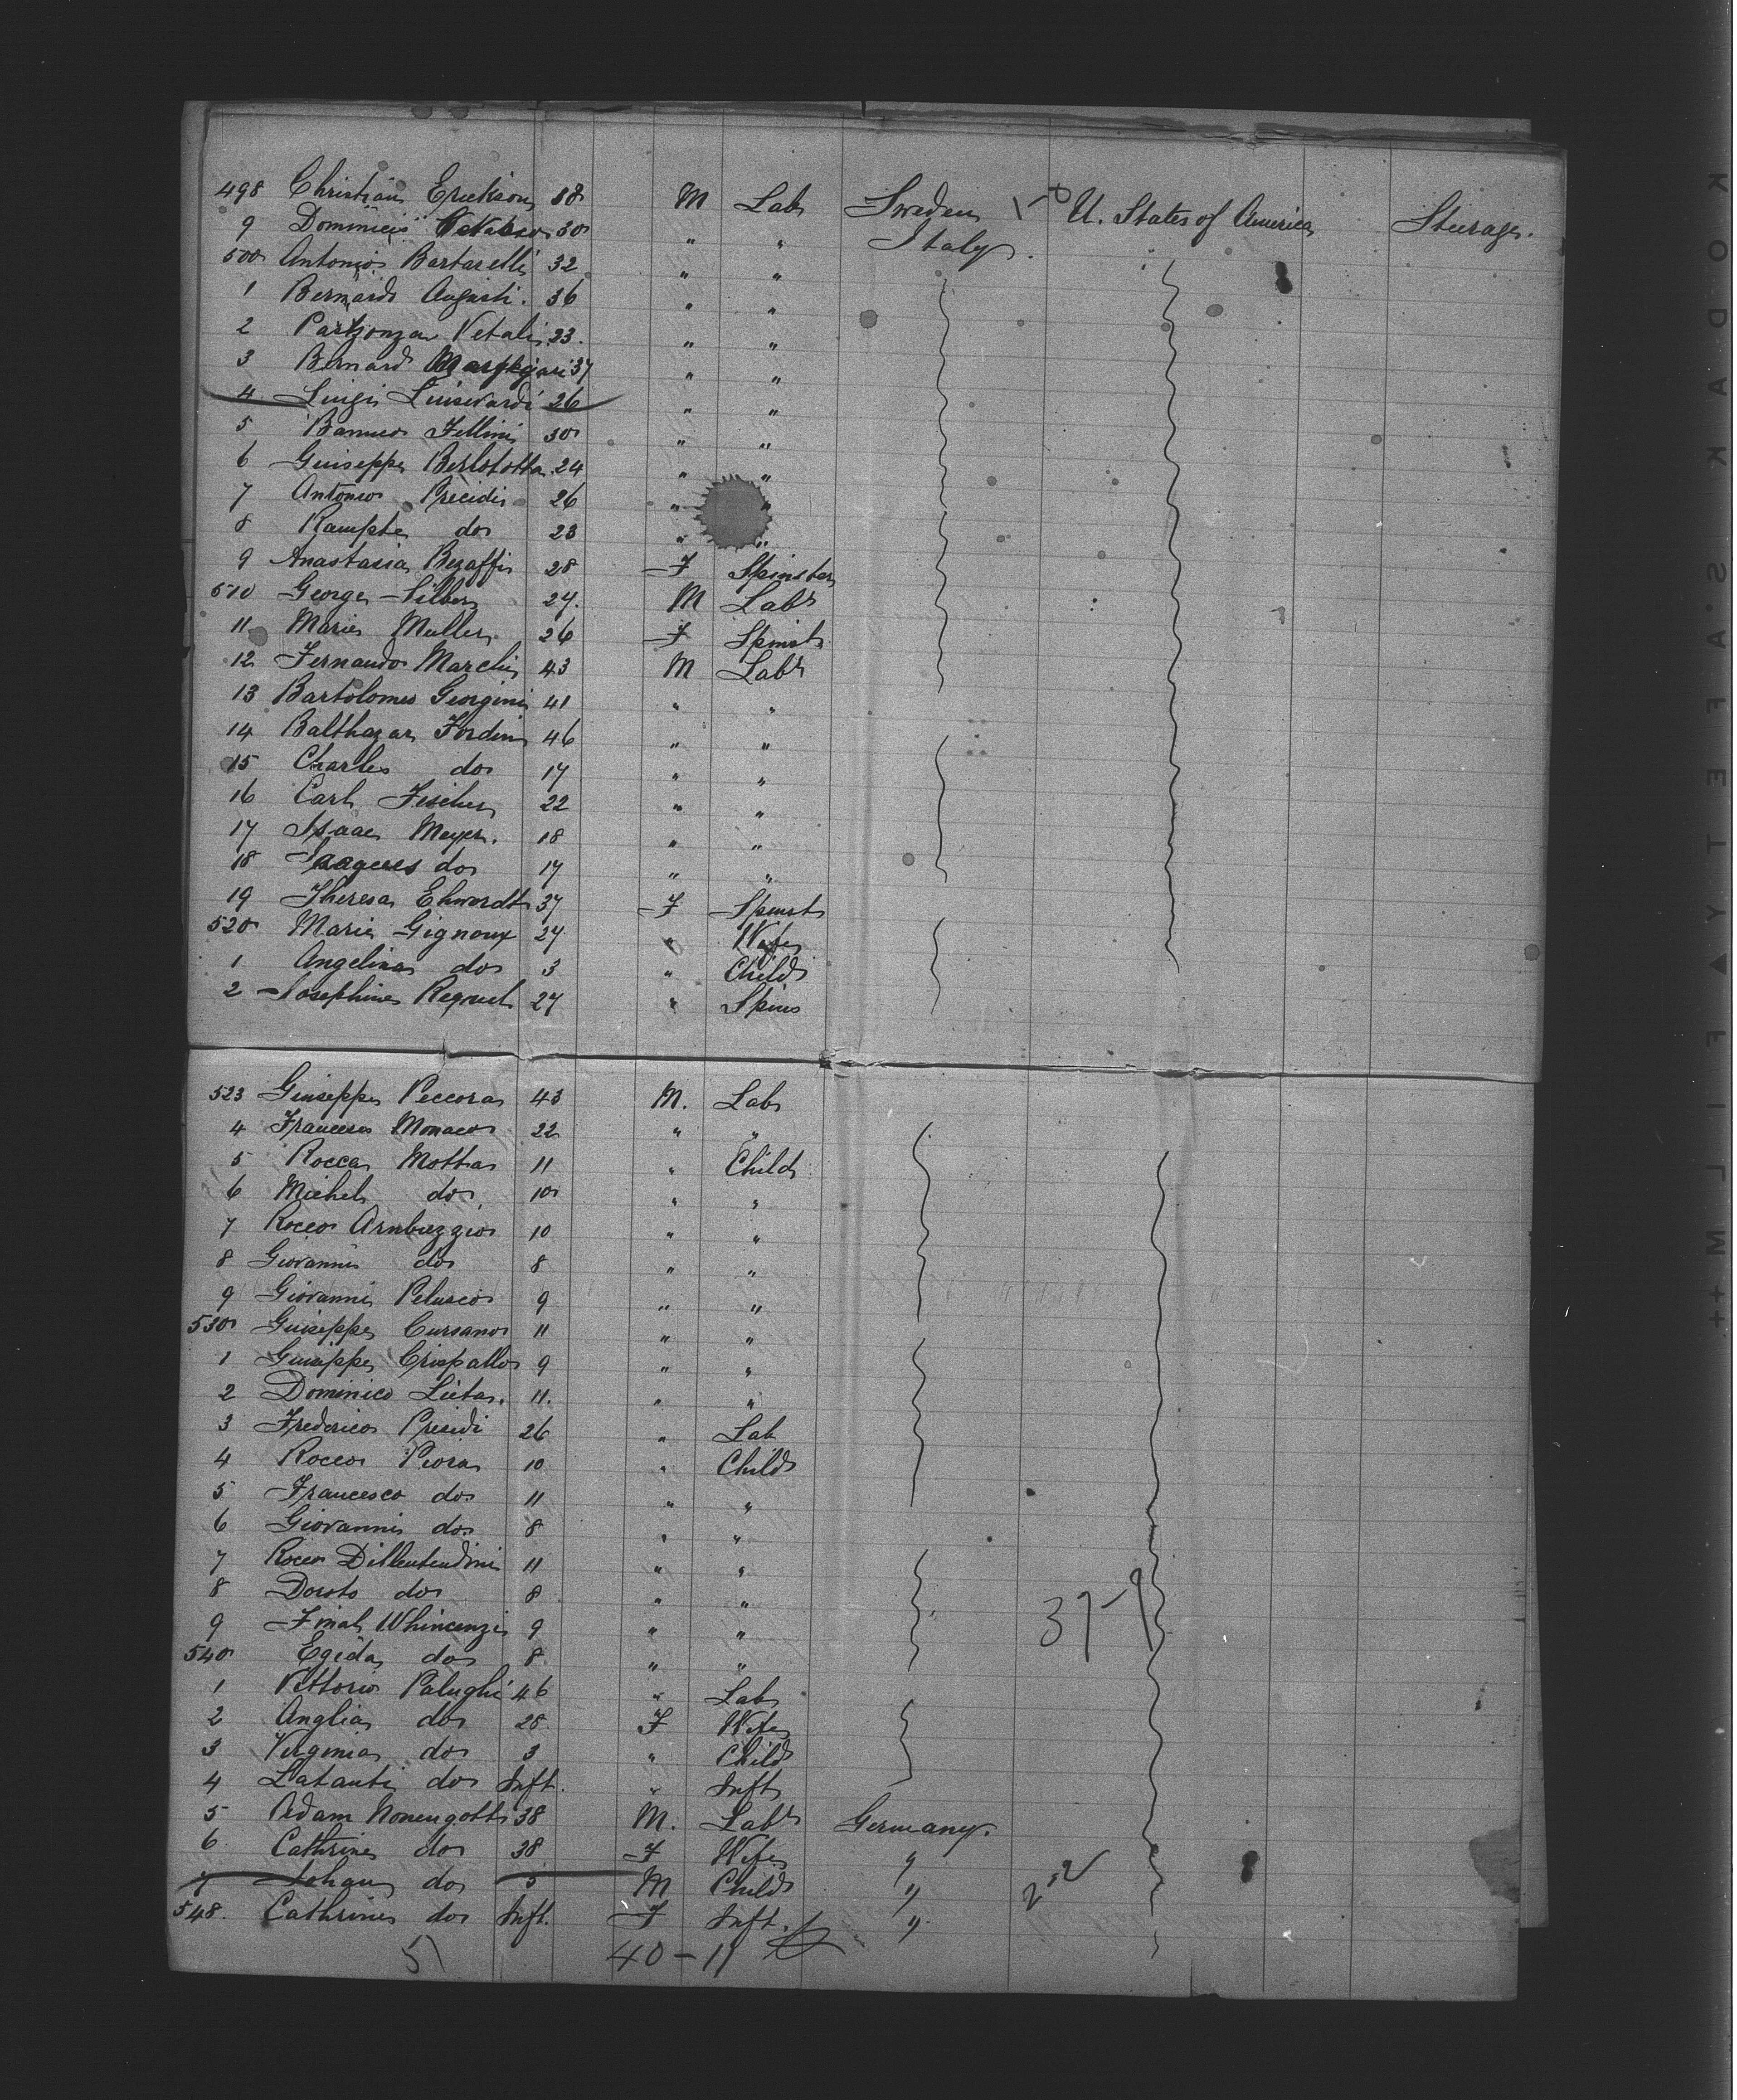 498 Christian Erickson 18 M Lab Sweden 1-0 U. States of America Steerage.
9 Dominicis 30 " " Italy.
500 Antonio Bartarelli 32 " "
1 Bernardo Augusti. 36 " "
2 Vetali 23. " "
3 Bernard 37 " "
4 Luigi Luisevardi 26 " "
5 Fellini 30 " "
6 Guiseppe Bertolotta 24 " "
7 Antonio Precidi 26 " "
8 do 23 " "
9 Anastasia Bezaffi 28 F Spinster
510 George Silber 27. M Labr
11 Marie Muller 26 F Spinst
12 Fernando Marchi 43 M Labr
13 Bartolomeo Georgini 41 " "
14 Balthazar Fordini 46 " "
15 Charles do 17 " "
16 Carl Fischer 22 " "
17 Isaac Meyer. 18 " "
18 do 17 " "
19 Theresa Ehwardt 37 F Spinst
520 Marie Gignoux 27 " Wife
1 Angelina do 3 " Child
2 Josephine 27 " Spins
523 Guiseppe Peccora 43 M. Lab
4 Francesco Monaco 22 " "
5 Rocca Motta 11 " Child
6 Michel do 10 " "
7 Rocco Arnbuzzio 10 " "
8 Giovanni do 8 " "
9 Giovanni Pelusio 9 " "
530 Guiseppe Cursano 11 " "
1 Guiseppe Crispallo 9 " "
2 Dominico Lieta. 11. " "
3 Frederico Presidi 26 " Lab
4 Rocco Piora 10 " Child
5 Francesco do 11 " "
6 Giovanni do 8 " "
7 Rocco 11 " "
8 Doroto do 8 " "
9 Whincenzi 9 " " 37-9
540 Egida do 8 " "
1 Vittorio Palughi 46 " Lab
2 Anglia do 28 F Wife
3 Virginia do 3 " Child
4 Latanti do Inft. " Inft
5 Adam Nonengott 38 M. Labr Germany.
6. Cathrine do 38 F Wife "
7 Johan do 5 M Child " 2-2
548. Cathrine do Inft. F Inft. "
51 40-11